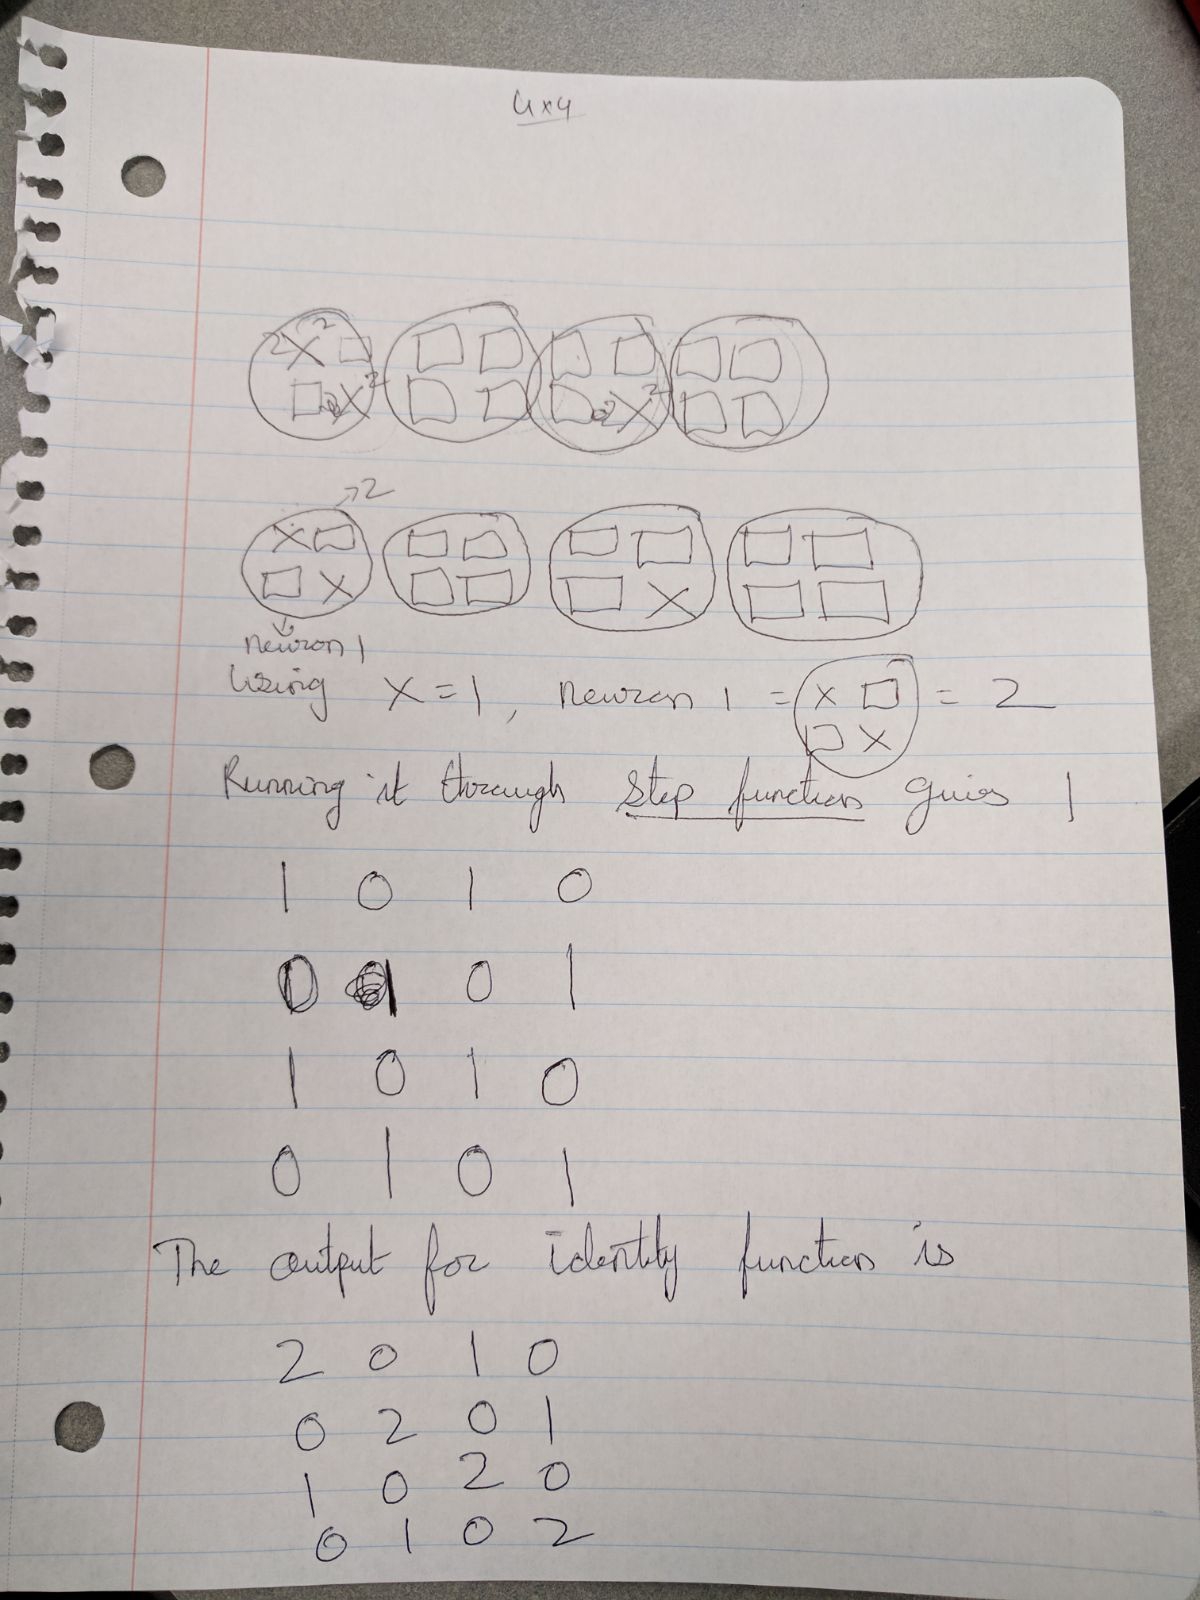 4x4
2 X 2
2 X 2 2 X 2
→ 2
X X
X X
neuron 1
Using X = 1, neuron 1 = X X = 2
Running it through step function gives 1
1 0 1 0
0 1 0 1
1 0 1 0
0 1 0 1
The output for identity function is
2 0 1 0
0 2 0 1
1 0 2 0
0 1 0 2